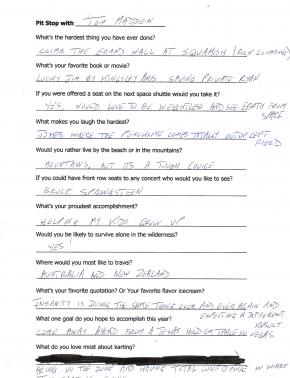 Pit Stop with Tom Madden
What's the hardest thing you have ever done?
CLIMB THE GRAND WALL AT SQUAMISH (ROCK CLIMBING)
What's your favorite book or movie?
LUCKY JIM BY KINGSLEY AMIS SAVING PRIVATE RYAN
If you were offered a seat on the next space shuttle would you take it?
YES, WOULD LOVE TO BE WEIGHTLESS AND SEE EARTH FROM
SPACE
What makes you laugh the hardest?
JOKES WHERE THE PUNCHLINE COMES TOTALLY OUT OF LEFT
FIELD
Would you rather live by the beach or in the mountains?
MOUNTAINS, BUT ITS A TOUGH CHOICE
If you could have front row seats to any concert who would you like to see?
BRUCE SPRINGSTEEN
What's your proudest accomplishment?
HELPING MY KIDS GROW UP
Would you be likely to survive alone in the wilderness?
YES!
Where would you most like to travel?
AUSTRALIA AND NEW ZEALAND
What's your favorite quotation? Or Your favorite flavor icecream?
INSANITY IS DOING THE SAME THING OVER AND OVER AGAIN AND
EXPECTING A DIFFERENT
RESULT
What one goal do you hope to accomplish this year?
COME AWAY AHEAD FROM A TEXAS HOLD-EM TABLE IN VEGAS
What do you love most about karting?
BEING IN THE ZONE AND HAVING TOTAL CONFIDENCE IN WHERE